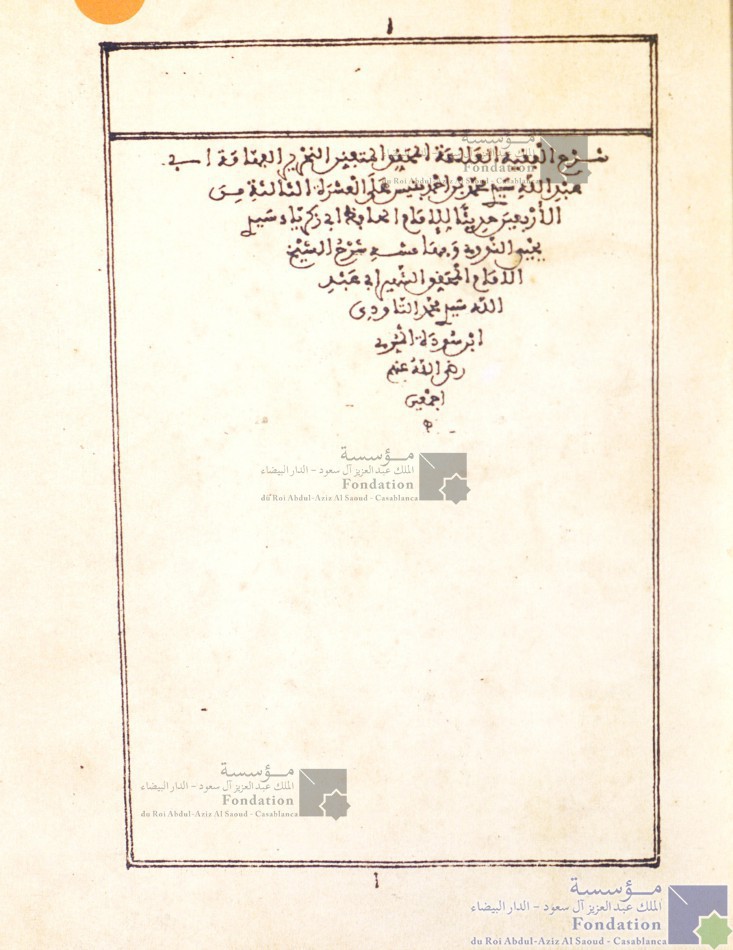 ١
شرح الفقيه العلامة المحقق المتفنن النحرير الفهامة ابي
عبد الله سيدي محمد بن احمد بنيس على العشرة الثالثة من
الاربعين حديثا للامام الحافظ ابي زكرياء سيدي
يحيى النووي وبهامشه شرح الشيخ
الامام المحقق الشهير ابي عبد
الله سيدي محمد التاودي
ابن سودة المري
رضي الله عنهم
اجمعين
مؤسسة
الملك عبد العزيز آل سعود - الدار البيضاء
Fondation
du Roi Abdul-Aziz Al Saoud - Casablanca
مؤسسة
الملك عبد العزيز آل سعود - الدار البيضاء
Fondation
du Roi Abdul-Aziz Al Saoud - Casablanca
مؤسسة
Fondation
du Roi Abdul-Aziz Al Saoud - Casablanca
١
مؤسسة
الملك عبد العزيز آل سعود - الدار البيضاء
Fondation
du Roi Abdul-Aziz Al Saoud - Casablanca